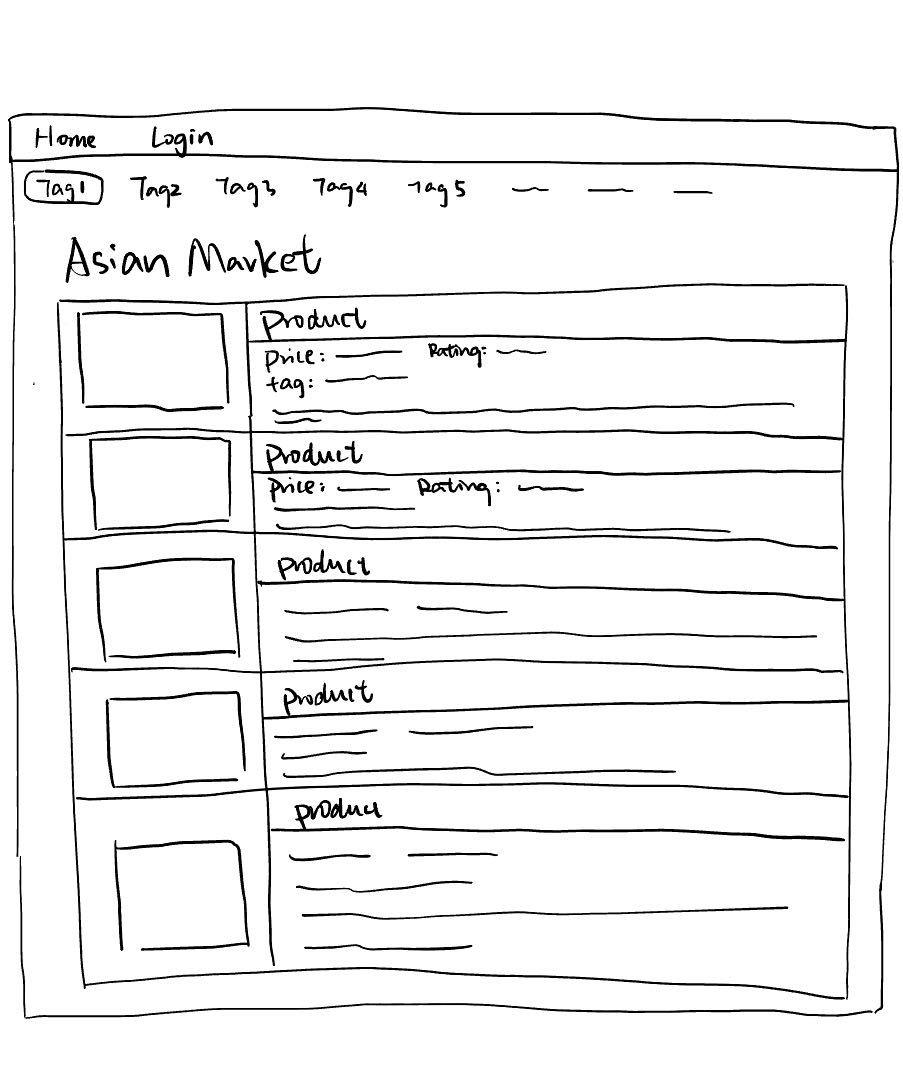 Home Login
Tag1 Tag2 Tag3 Tag4 Tag5
Asian Market
Product
Price: Rating:
tag:
Product
Price: Rating:
product
product
product